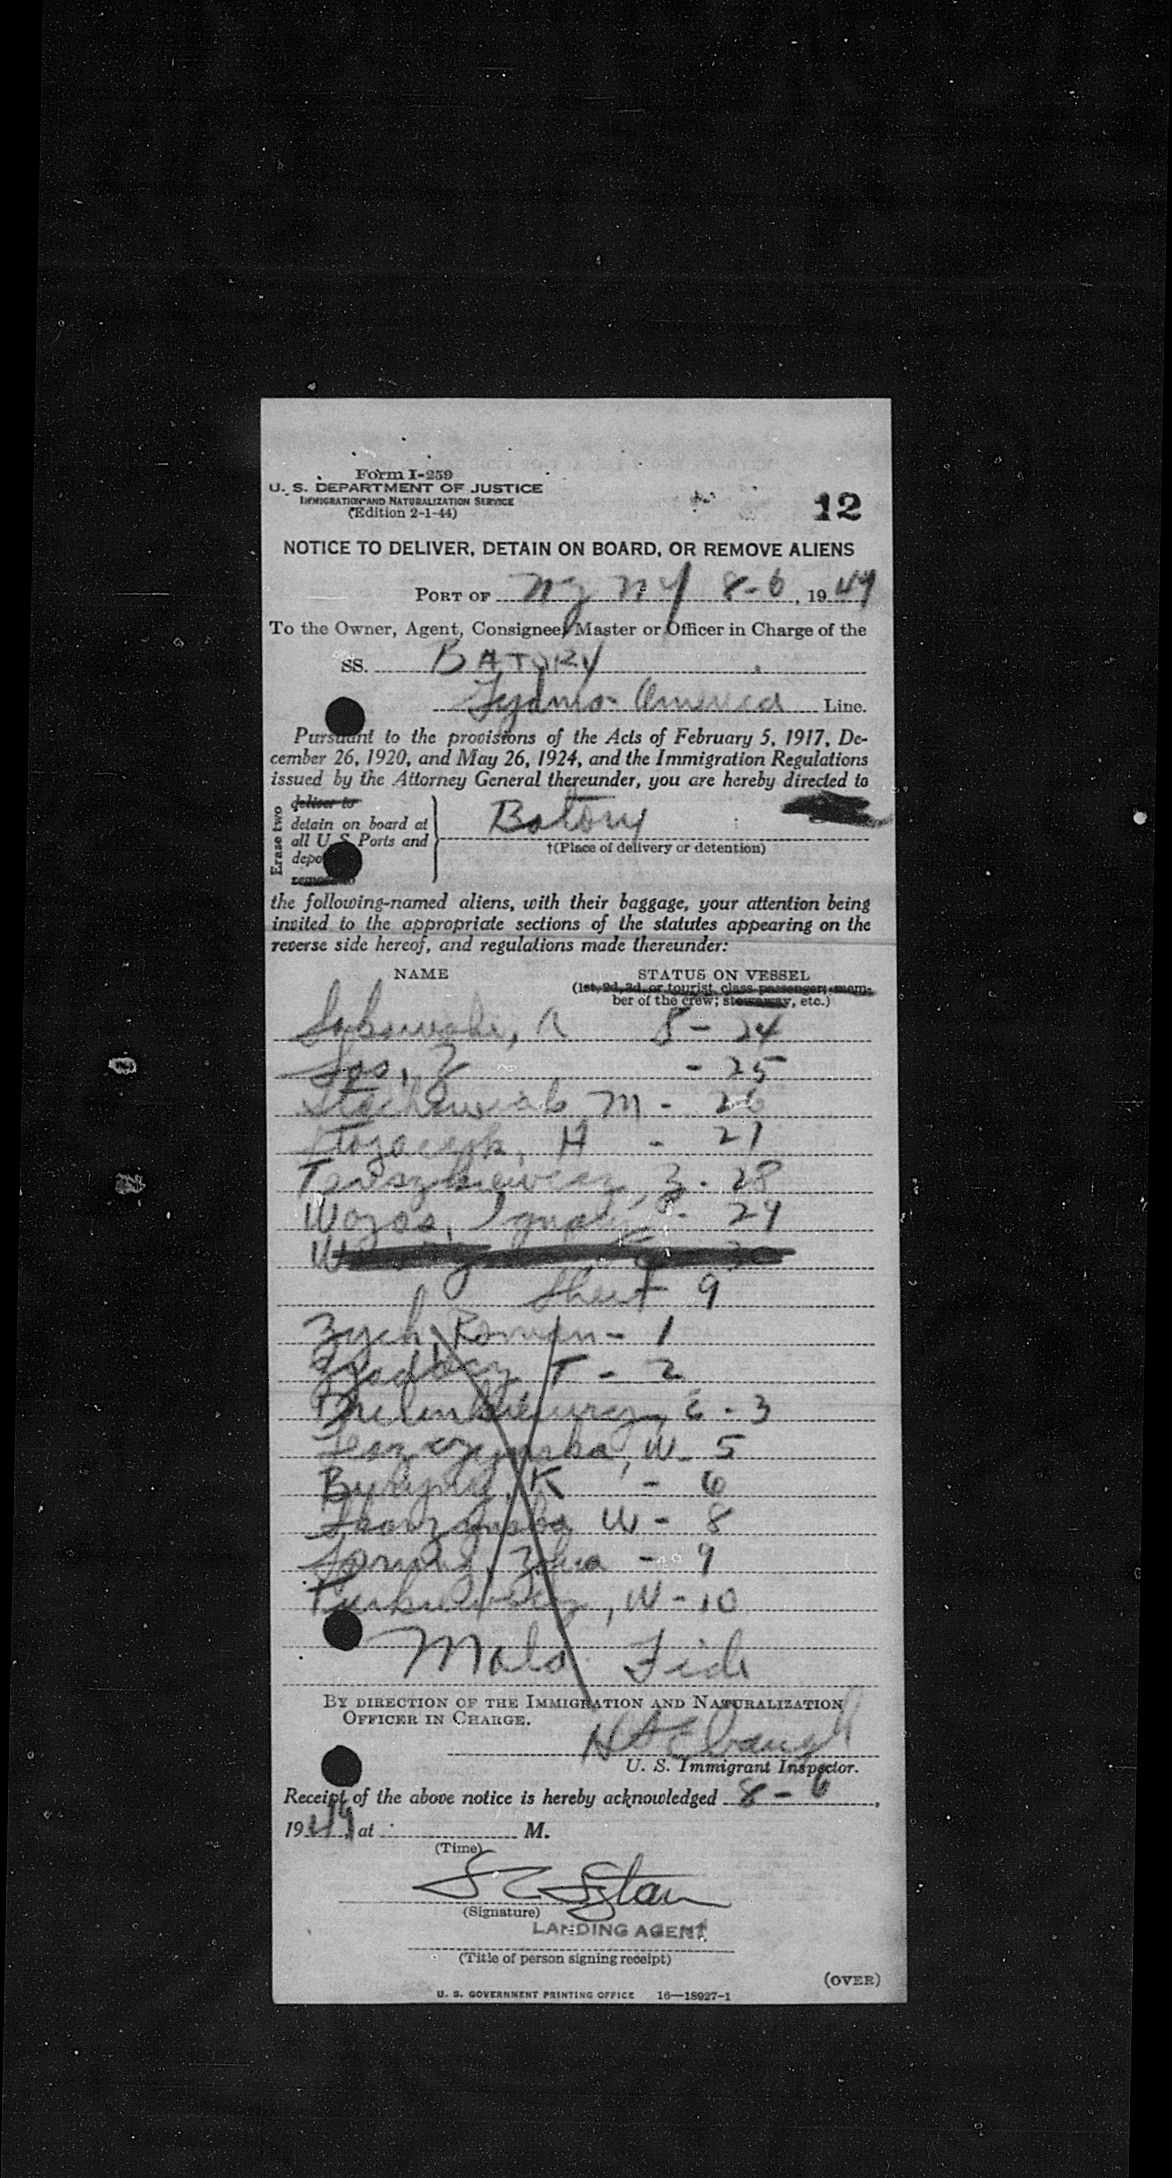 Form I-259
U. S. DEPARTMENT OF JUSTICE
IMMIGRATION AND NATURALIZATION SERVICE
(Edition 2-1-44)
12
NOTICE TO DELIVER, DETAIN ON BOARD, OR REMOVE ALIENS
PORT OF NY NY 8-6, 1949
To the Owner, Agent, Consignee, Master or Officer in Charge of the
SS. BATORY
Gdynia-America Line.
Pursuant to the provisions of the Acts of February 5, 1917, De-
cember 26, 1920, and May 26, 1924, and the Immigration Regulations
issued by the Attorney General thereunder, you are hereby directed to
Erase two
deliver to
detain on board at
all U. S. Ports and
remove to
Batory
†(Place of delivery or detention)
the following-named aliens, with their baggage, your attention being
invited to the appropriate sections of the statutes appearing on the
reverse side hereof, and regulations made thereunder:
NAME STATUS ON VESSEL
(1st, 2d, 3d, or tourist class passenger; mem-
ber of the crew; stowaway, etc.)
8 - 24
Sos, Z - 25
M - 26
H - 27
Z - 28
Wozos, - 29
W
Sheet 9
Zych, Roman - 1
T - 2
E - 3
Leszczynska, W - 5
K - 6
W - 8
Zofia - 9
W - 10
Mala Fide
BY DIRECTION OF THE IMMIGRATION AND NATURALIZATION
OFFICER IN CHARGE.
Ebaugh
U. S. Immigrant Inspector.
Receipt of the above notice is hereby acknowledged 8 - 6,
1949, at M.
(Time)
(Signature)
LANDING AGENT
(Title of person signing receipt)
(OVER)
U. S. GOVERNMENT PRINTING OFFICE 16—18927-1